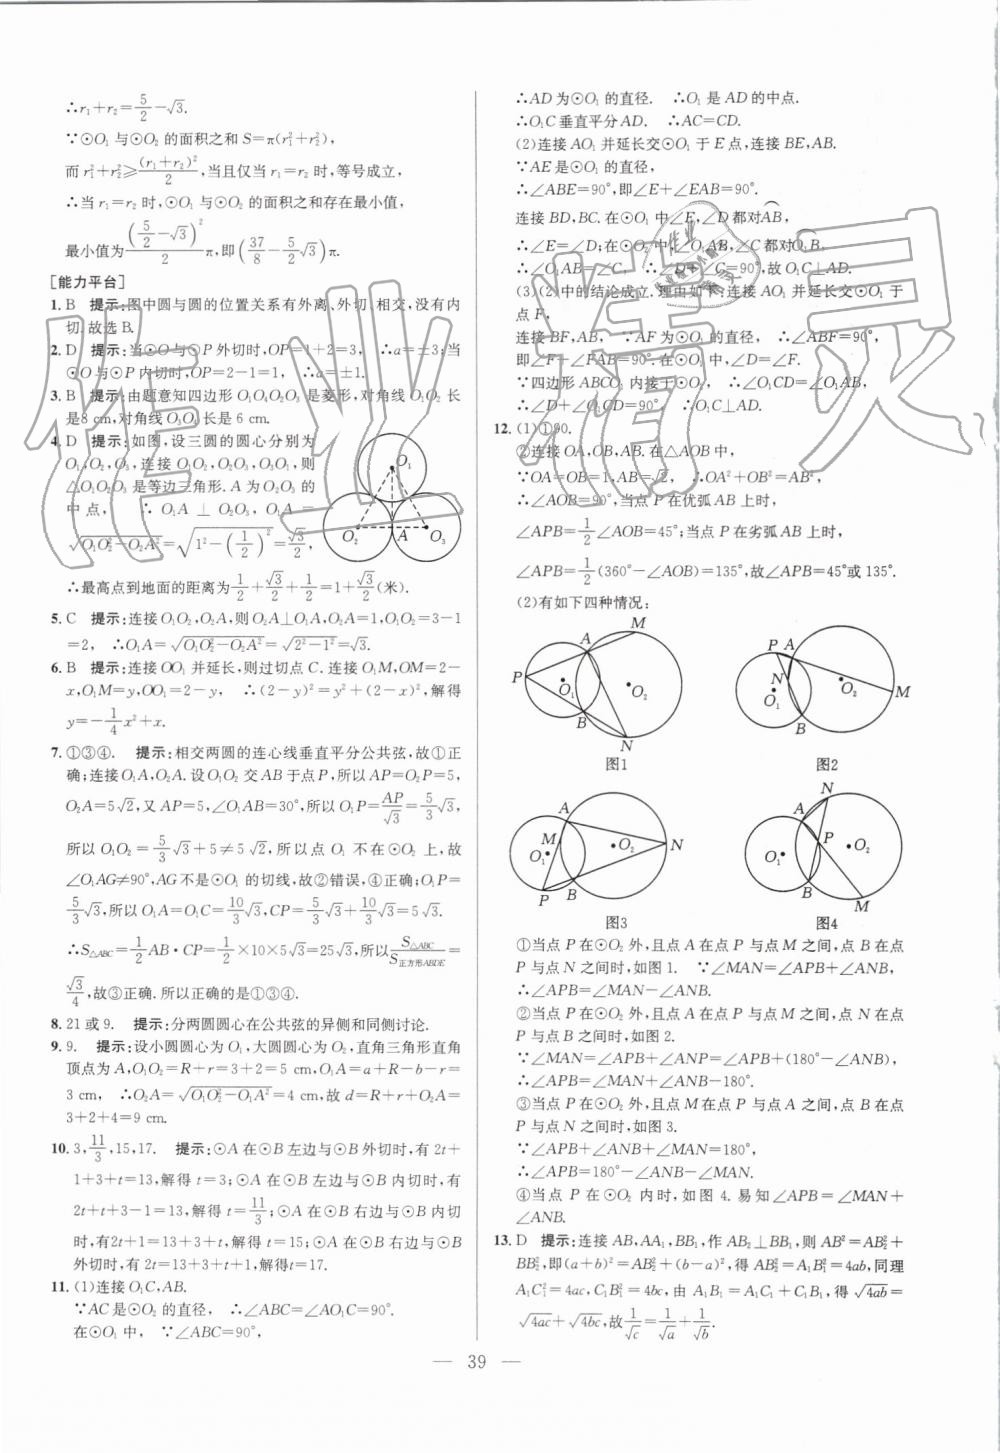 ∴r₁+r₂=5/2-√3.
∵⊙O₁与⊙O₂的面积之和S=π(r₁²+r₂²),
而r₁²+r₂²≥(r₁+r₂)²/2,当且仅当r₁=r₂时,等号成立,
∴当r₁=r₂时,⊙O₁与⊙O₂的面积之和存在最小值,
最小值为(5/2-√3)²/2π,即(37/8-5/2√3)π.
[能力平台]
1. B 提示:图中圆与圆的位置关系有外离、外切、相交,没有内
切.故选B.
2. D 提示:当⊙O与⊙P外切时,OP=1+2=3, ∴a=±3;当
⊙O与⊙P内切时,OP=2-1=1, ∴a=±1.
3. B 提示:由题意知四边形O₁O₂O₃ 是菱形,对角线O₁O₂长
是8 cm,对角线O₃O₄长是6 cm.
4. D 提示:如图,设三圆的圆心分别为
O₁,O₂,O₃,连接O₁O₂,O₁O₃,O₂O₃,则
△O₁O₂O₃是等边三角形.A为O₂O₃的
中点, ∴O₁A⊥O₂O₃,O₁A=
√(O₁O₂²-O₂A²)=√(1²-(1/2)²)=√3/2,
O₁
O₂ A O₃
∴最高点到地面的距离为1/2+√3/2+1/2=1+√3/2(米).
5. C 提示:连接O₁O₂,O₂A,则O₂A⊥O₁A,O₂A=1,O₁O₂=3-1
=2, ∴O₁A=√(O₁O₂²-O₂A²)=√(2²-1²)=√3.
6. B 提示:连接OO₁并延长,则过切点C.连接O₁M,OM=2-
x,O₁M=y,OO₁=2-y, ∴(2-y)²=y²+(2-x)²,解得
y=-1/4x²+x.
7. ①③④. 提示:相交两圆的连心线垂直平分公共弦,故①正
确;连接O₁A,O₂A.设O₁O₂交AB于点P,所以AP=O₂P=5,
O₂A=5√2,又AP=5,∠O₁AB=30°,所以O₁P=AP/√3=5/3√3,
所以O₁O₂=5/3√3+5≠5√2,所以点O₁不在⊙O₂上,故
∠O₁AG≠90°,AG不是⊙O₁的切线,故②错误,④正确;O₁P=
5/3√3,所以O₁A=O₁C=10/3√3,CP=5/3√3+10/3√3=5√3.
∴S△ABC=1/2AB·CP=1/2×10×5√3=25√3,所以S△ABC/S正方形ABDE=
√3/4,故③正确.所以正确的是①③④.
8. 21或9. 提示:分两圆圆心在公共弦的异侧和同侧讨论.
9. 9. 提示:设小圆圆心为O₁,大圆圆心为O₂,直角三角形直角
顶点为A,O₁O₂=R+r=3+2=5 cm,O₁A=a+R-b-r=
3 cm, ∴O₂A=√(O₁O₂²-O₁A²)=4 cm,故d=R+r+O₂A=
3+2+4=9 cm.
10. 3,11/3,15,17. 提示:⊙A在⊙B左边与⊙B外切时,有2t+
1+3+t=13,解得t=3;⊙A在⊙B左边与⊙B内切时,有
2t+t+3-1=13,解得t=11/3;⊙A在⊙B右边与⊙B内切
时,有2t+1=13+3+t,解得t=15;⊙A在⊙B右边与⊙B
外切时,有2t=13+3+t+1,解得t=17.
11. (1)连接O₁C,AB.
∵AC是⊙O₂的直径, ∴∠ABC=∠AO₁C=90°.
在⊙O₁中, ∵∠ABC=90°,
∴AD为⊙O₁的直径. ∴O₁是AD的中点.
∴O₁C垂直平分AD. ∴AC=CD.
(2)连接AO₁并延长交⊙O₁于E点,连接BE,AB.
∵AE是⊙O₁的直径,
∴∠ABE=90°,即∠E+∠EAB=90°.
连接BD,BC.在⊙O₁中∠E,∠D都对AB,
∴∠E=∠D;在⊙O₂中,∠O₁AB,∠C都对O₁B,
(3)(2)中的结论成立.理由如下:连接AO₁并延长交⊙O₁于
点F,
连接BF,AB, ∵AF为⊙O₁的直径, ∴∠ABF=90°,
即∠F+∠FAB=90°.在⊙O₁中,∠D=∠F.
∵四边形ABCO₁内接于⊙O₂, ∴∠O₁CD=∠O₁AB.
∴∠D+∠O₁CD=90°. ∴O₁C⊥AD.
12. (1)①90.
②连接OA,OB,AB.在△AOB中,
∵OA=OB=1,AB=√2, ∴OA²+OB²=AB².
∴∠AOB=90°,当点P在优弧AB上时,
∠APB=1/2∠AOB=45°;当点P在劣弧AB上时,
∠APB=1/2(360°-∠AOB)=135°,故∠APB=45°或135°.
(2)有如下四种情况:
M A P O₁ O₂ B N
图1
P A N O₁ O₂ M B
图2
A M O₁ O₂ N P B
图3
N A P O₁ O₂ B M
图4
①当点P在⊙O₂外,且点A在点P与点M之间,点B在点
P与点N之间时,如图1. ∵∠MAN=∠APB+∠ANB,
∴∠APB=∠MAN-∠ANB.
②当点P在⊙O₂外,且点A在点P与点M之间,点N在点
P与点B之间时,如图2.
∵∠MAN=∠APB+∠ANP=∠APB+(180°-∠ANB),
∴∠APB=∠MAN+∠ANB-180°.
③当点P在⊙O₂外,且点M在点P与点A之间,点B在点
P与点N之间时,如图3.
∵∠APB+∠ANB+∠MAN=180°,
∴∠APB=180°-∠ANB-∠MAN.
④当点P在⊙O₂内时,如图4.易知∠APB=∠MAN+
∠ANB.
13. D 提示:连接AB,AA₁,BB₁,作AB₂⊥BB₁,则AB²=AB₂²+
BB₂²,即(a+b)²=AB₂²+(b-a)²,得AB₂²=A₁B₁²=4ab,同理
A₁C₁²=4ac,C₁B₁²=4bc,由A₁B₁=A₁C₁+C₁B₁,得√4ab=
√4ac+√4bc,故1/√c=1/√a+1/√b.
— 39 —